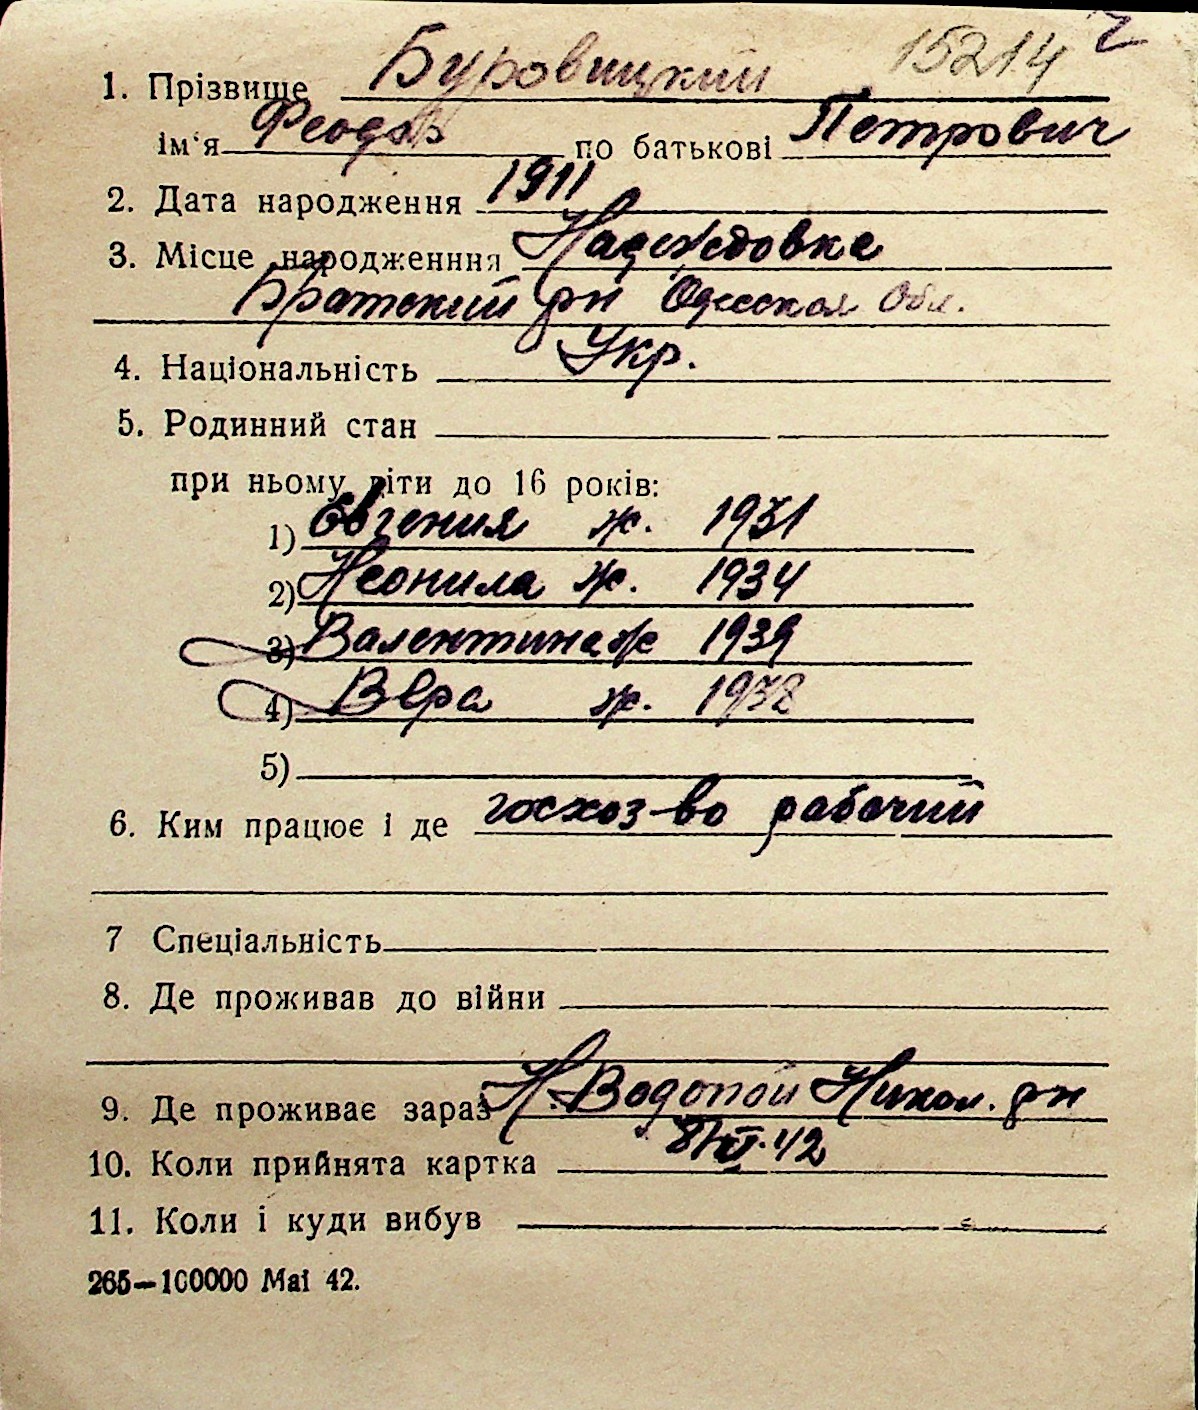 15214
1. Прізвище Буровицкий
ім'я Феодор по батькові Петрович
2. Дата народження 1911
3. Місце народженння Надеждовка
Братский рн Одесская Обл.
4. Національність Укр.
5. Родинний стан
при ньому діти до 16 років:
1) Евгения ж. 1931
2) Неонила ж. 1934
3) Валентина ж 1939
4) Вера ж. 1938
5)
6. Ким працює і де госхоз-во рабочий
7 Спеціальність
8. Де проживав до війни
9. Де проживає зараз Н. Водопой Никол. рн
10. Коли прийнята картка 42
11. Коли і куди вибув
265—100000 Mai 42.